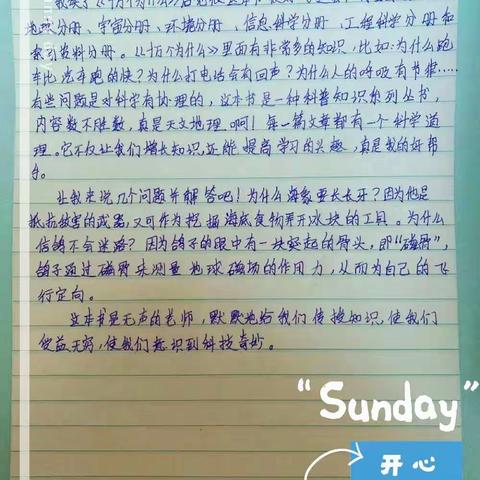 地球分册、宇宙分册、环境分册、信息科学分册、工程科学分册和
索引资料分册。《十万个为什么》里面有非常多的知识,比如:为什么跑
车比汽车跑的快?为什么打电话会有回声?为什么人的呼吸有节律……
有些问题是对科学有协理的,这本书是一种科普知识系列丛书,
内容数不胜数,真是天文地理。啊!每一篇文章都有一个科学道
理。它不仅让我们增长知识,还能提高学习的兴趣,真是我的好帮
手。
让我来说几个问题并解答吧!为什么海象要长长牙?因为他是
抵抗敌害的武器,又可作为挖掘海底食物弄开冰块的工具。为什么
信鸽不会迷路?因为鸽子的眼中有一块突起的骨头,即“磁骨”,
鸽子通过磁骨来测量地球磁场的作用力,从而为自己的飞
行定向。
这本书是无声的老师,默默地给我们传授知识,使我们
受益无穷,使我们意识到科技奇妙。
“Sunday”
开心